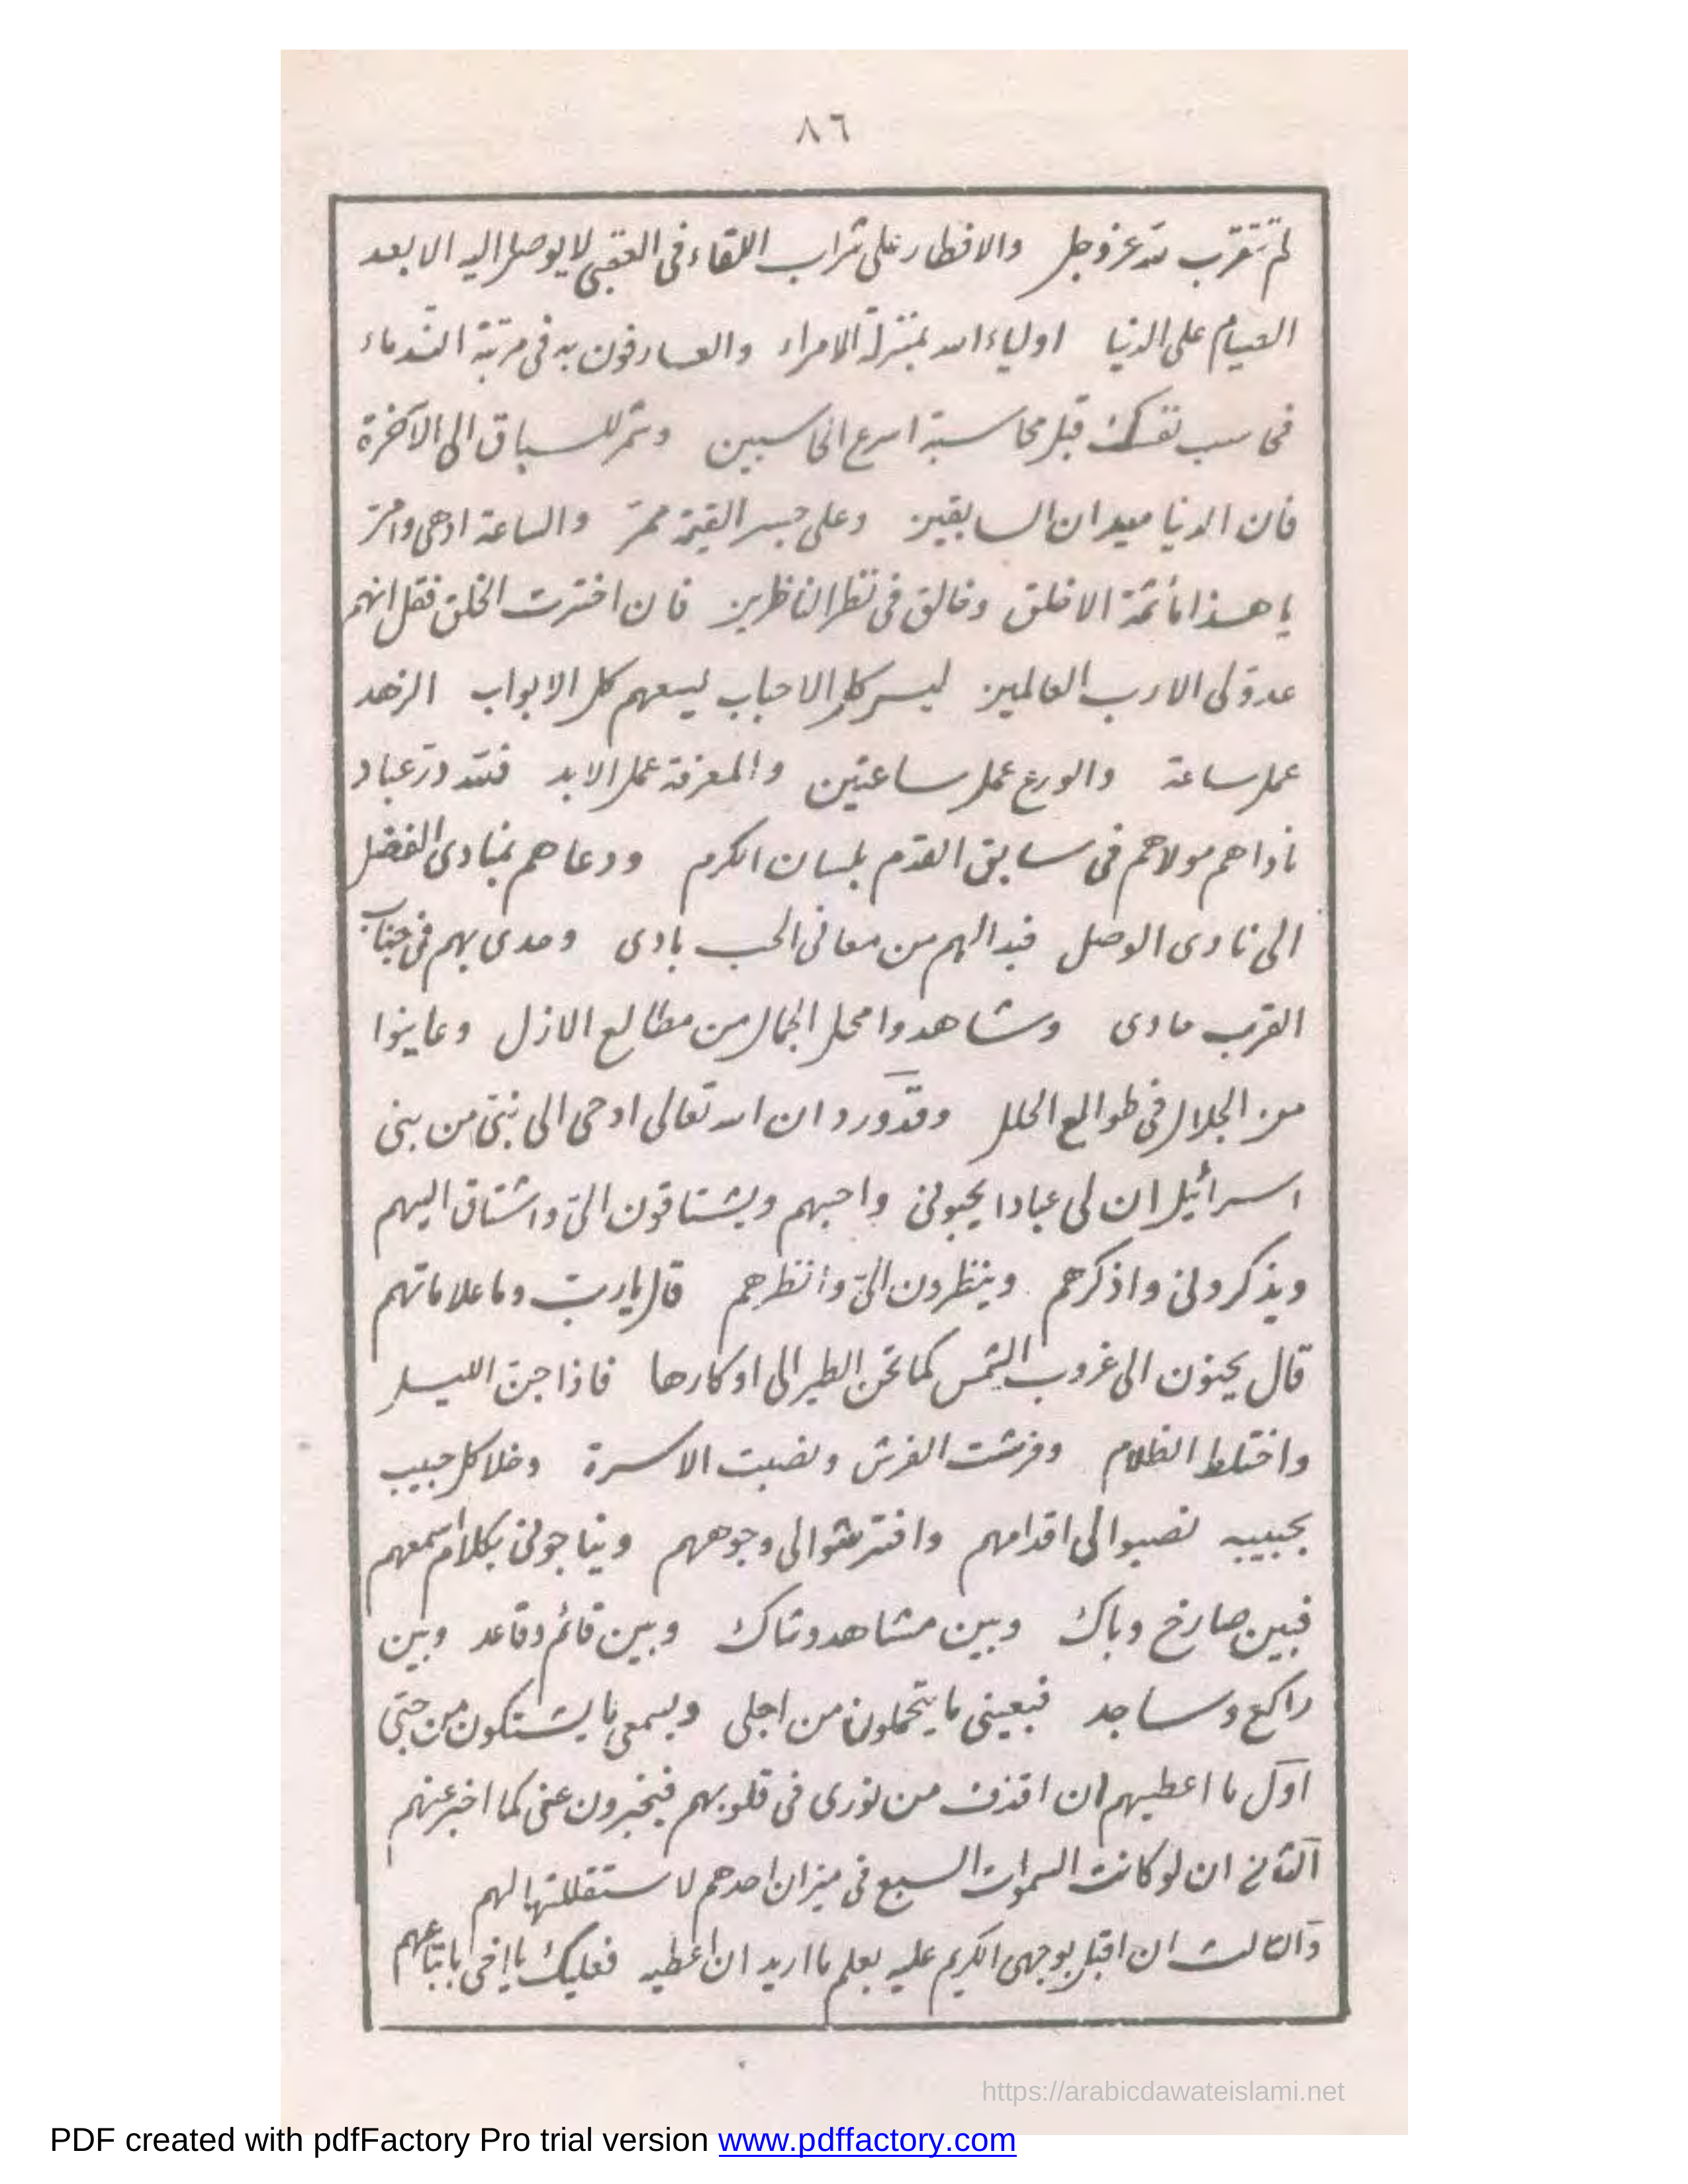 ٨٦
لم تتقرب لله عز وجل والافطار على شراب اللقاء فى العقبى لا يوصل اليه الا بعد
الصيام على الدنيا اولياء الله بمنزلة الامراء والعارفون به فى مرتبة الندماء
فحاسب نفسك قبل محاسبة اسرع الحاسبين وشمر للسباق الى الآخرة
فان الدنيا ميدان السابقين وعلى جسر القيمة ممر والساعة ادهى وامر
يا هذا ما ثمة الا خلق وخالق فى نظر الناظرين فان اخترت الخلق فقل انهم
عدو لى الا رب العالمين ليس كل الاحباب ليسعهم كل الابواب الزهد
عمل ساعة والورع عمل ساعتين والمعرفة عمل الابد فلله در عباد
ناداهم مولاهم فى سابق القدم بلسان الكرم ودعاهم بمنادى الفضل
الى نادى الوصل فبدا لهم من معانى الحب بادى وحدى بهم فى جناب
القرب حادى وشاهدوا محل الجمال من مطالع الازل وعاينوا
من الجلال فى طوالع الحلل وقد ورد ان الله تعالى اوحى الى نبى من بنى
اسرائيل ان لى عبادا يحبونى واحبهم ويشتاقون الىّ واشتاق اليهم
ويذكرونى واذكرهم وينظرون الىّ وانظرهم قال يا رب وما علاماتهم
قال يحنون الى غروب الشمس كما تحن الطير الى اوكارها فاذا جن الليل
واختلط الظلام وفرشت الفرش ونصبت الاسرة وخلا كل حبيب
بحبيبه نصبوا لى اقدامهم وافترشوا لى وجوههم ويناجونى بكلام اسمعهم
فبين صارخ وباك وبين مشاهد وشاك وبين قائم وقاعد وبين
راكع وساجد فبعينى ما يتحملون من اجلى وبسمعى ما يشتكون من حبى
اول ما اعطيهم ان اقذف من نورى فى قلوبهم فيخبرون عنى كما اخبر عنهم
الثانى ان لو كانت السموات السبع فى ميزان احدهم لاستقللتها لهم
والثالث ان اقبل بوجهى الكريم عليه يعلم ما اريد ان اعطيه فعليك يا اخى باتباعهم
https://arabicdawateislami.net
PDF created with pdfFactory Pro trial version www.pdffactory.com